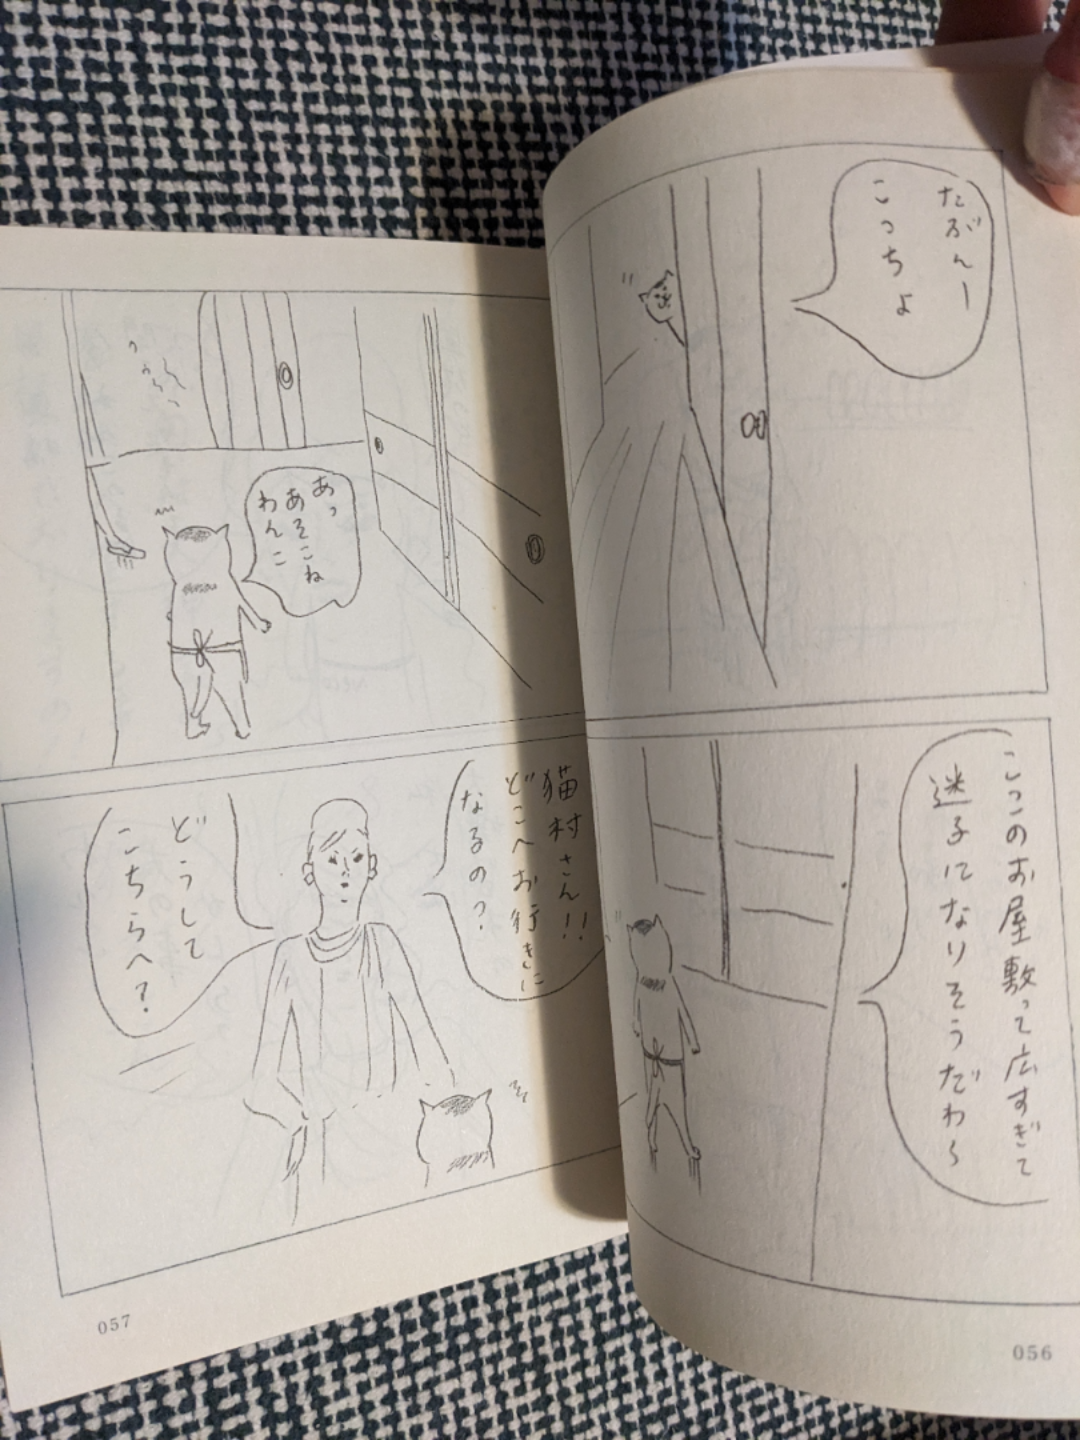 たぶんー
こっちよ
ここのお屋敷って広すぎて
迷子になりそうだわ〜
056
あっ
あそこね
わんこ
猫村さん!!
どこへお行きに
なるの?
どうして
こちらへ?
057